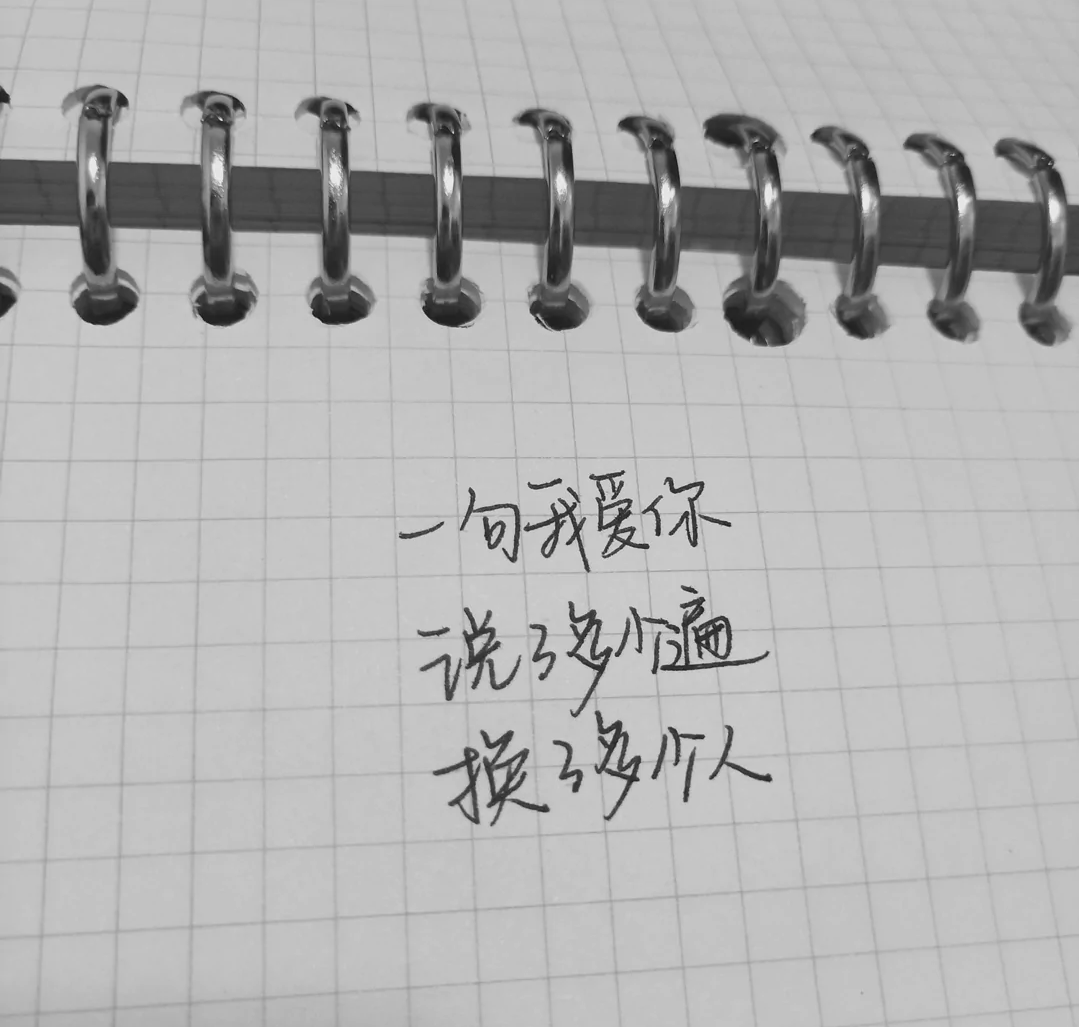 一句我爱你
说了多个遍
换了多个人